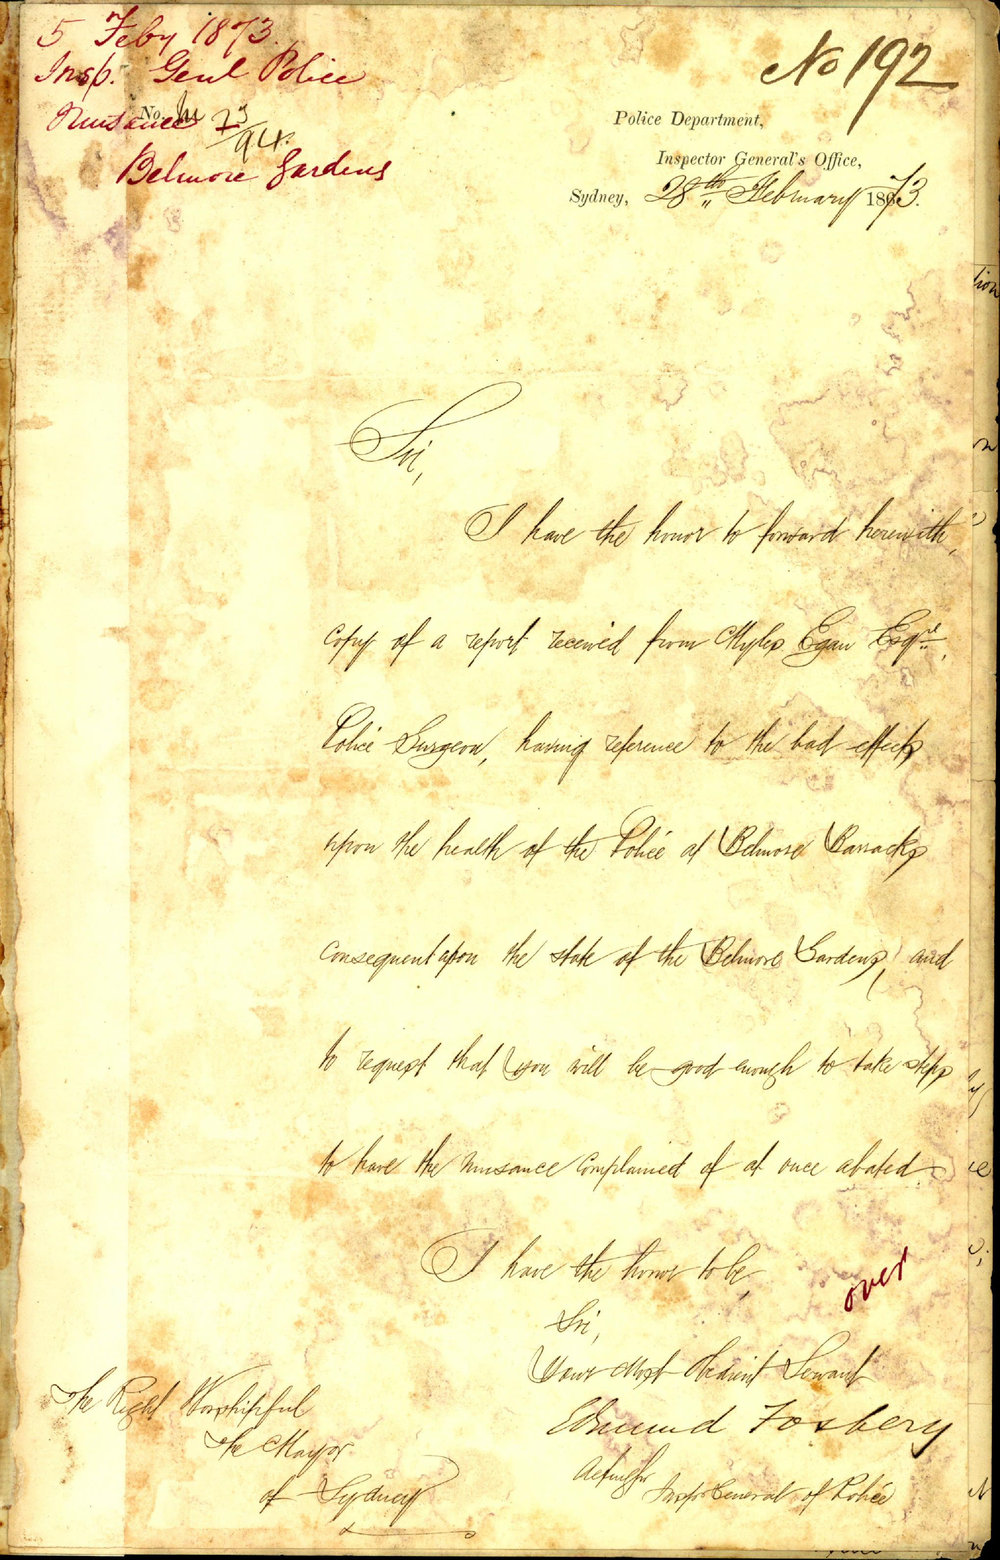 5 Feby 1873
Insp. Genl Police
Nuisance
Belmore Gardens
No. 73/94.
No 192
Police Department,
Inspector General's Office,
Sydney, 28th February 1873.
Sir,
I have the honor to forward herewith,
copy of a report received from Myles Egan Esqre,
Police Surgeon, having reference to the bad effects
upon the health of the Police at Belmore Barracks
consequent upon the state of the Belmore Gardens, and
to request that you will be good enough to take steps
to have the nuisance complained of at once abated.
I have the honor to be,
Sir,
Your Most Obedient Servant
Edmund Fosbery
Acting for
Inspr General of Police
over
The Right Worshipful
The Mayor
of Sydney